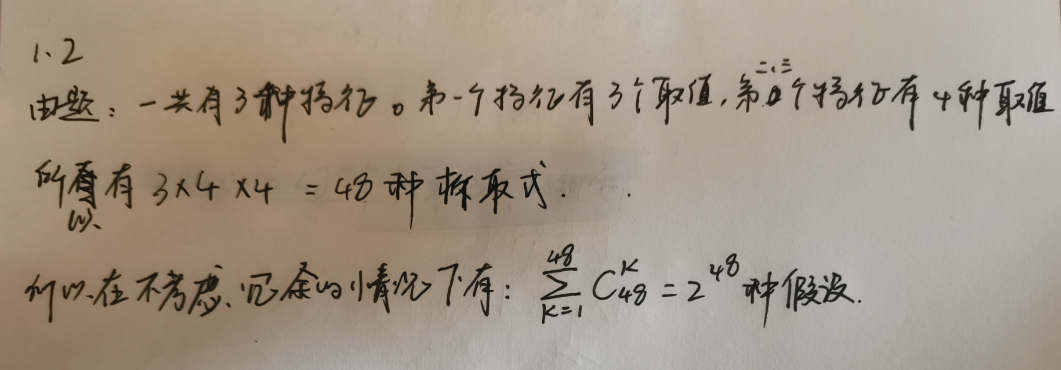 1.2
由题：一共有3种特征。第一个特征有3个取值，第二、三个特征有4种取值
所以有 3×4×4 = 48 种析取式.
所以在不考虑冗余的情况下有：$\sum_{K=1}^{48} C_{48}^{K} = 2^{48}$ 种假设.